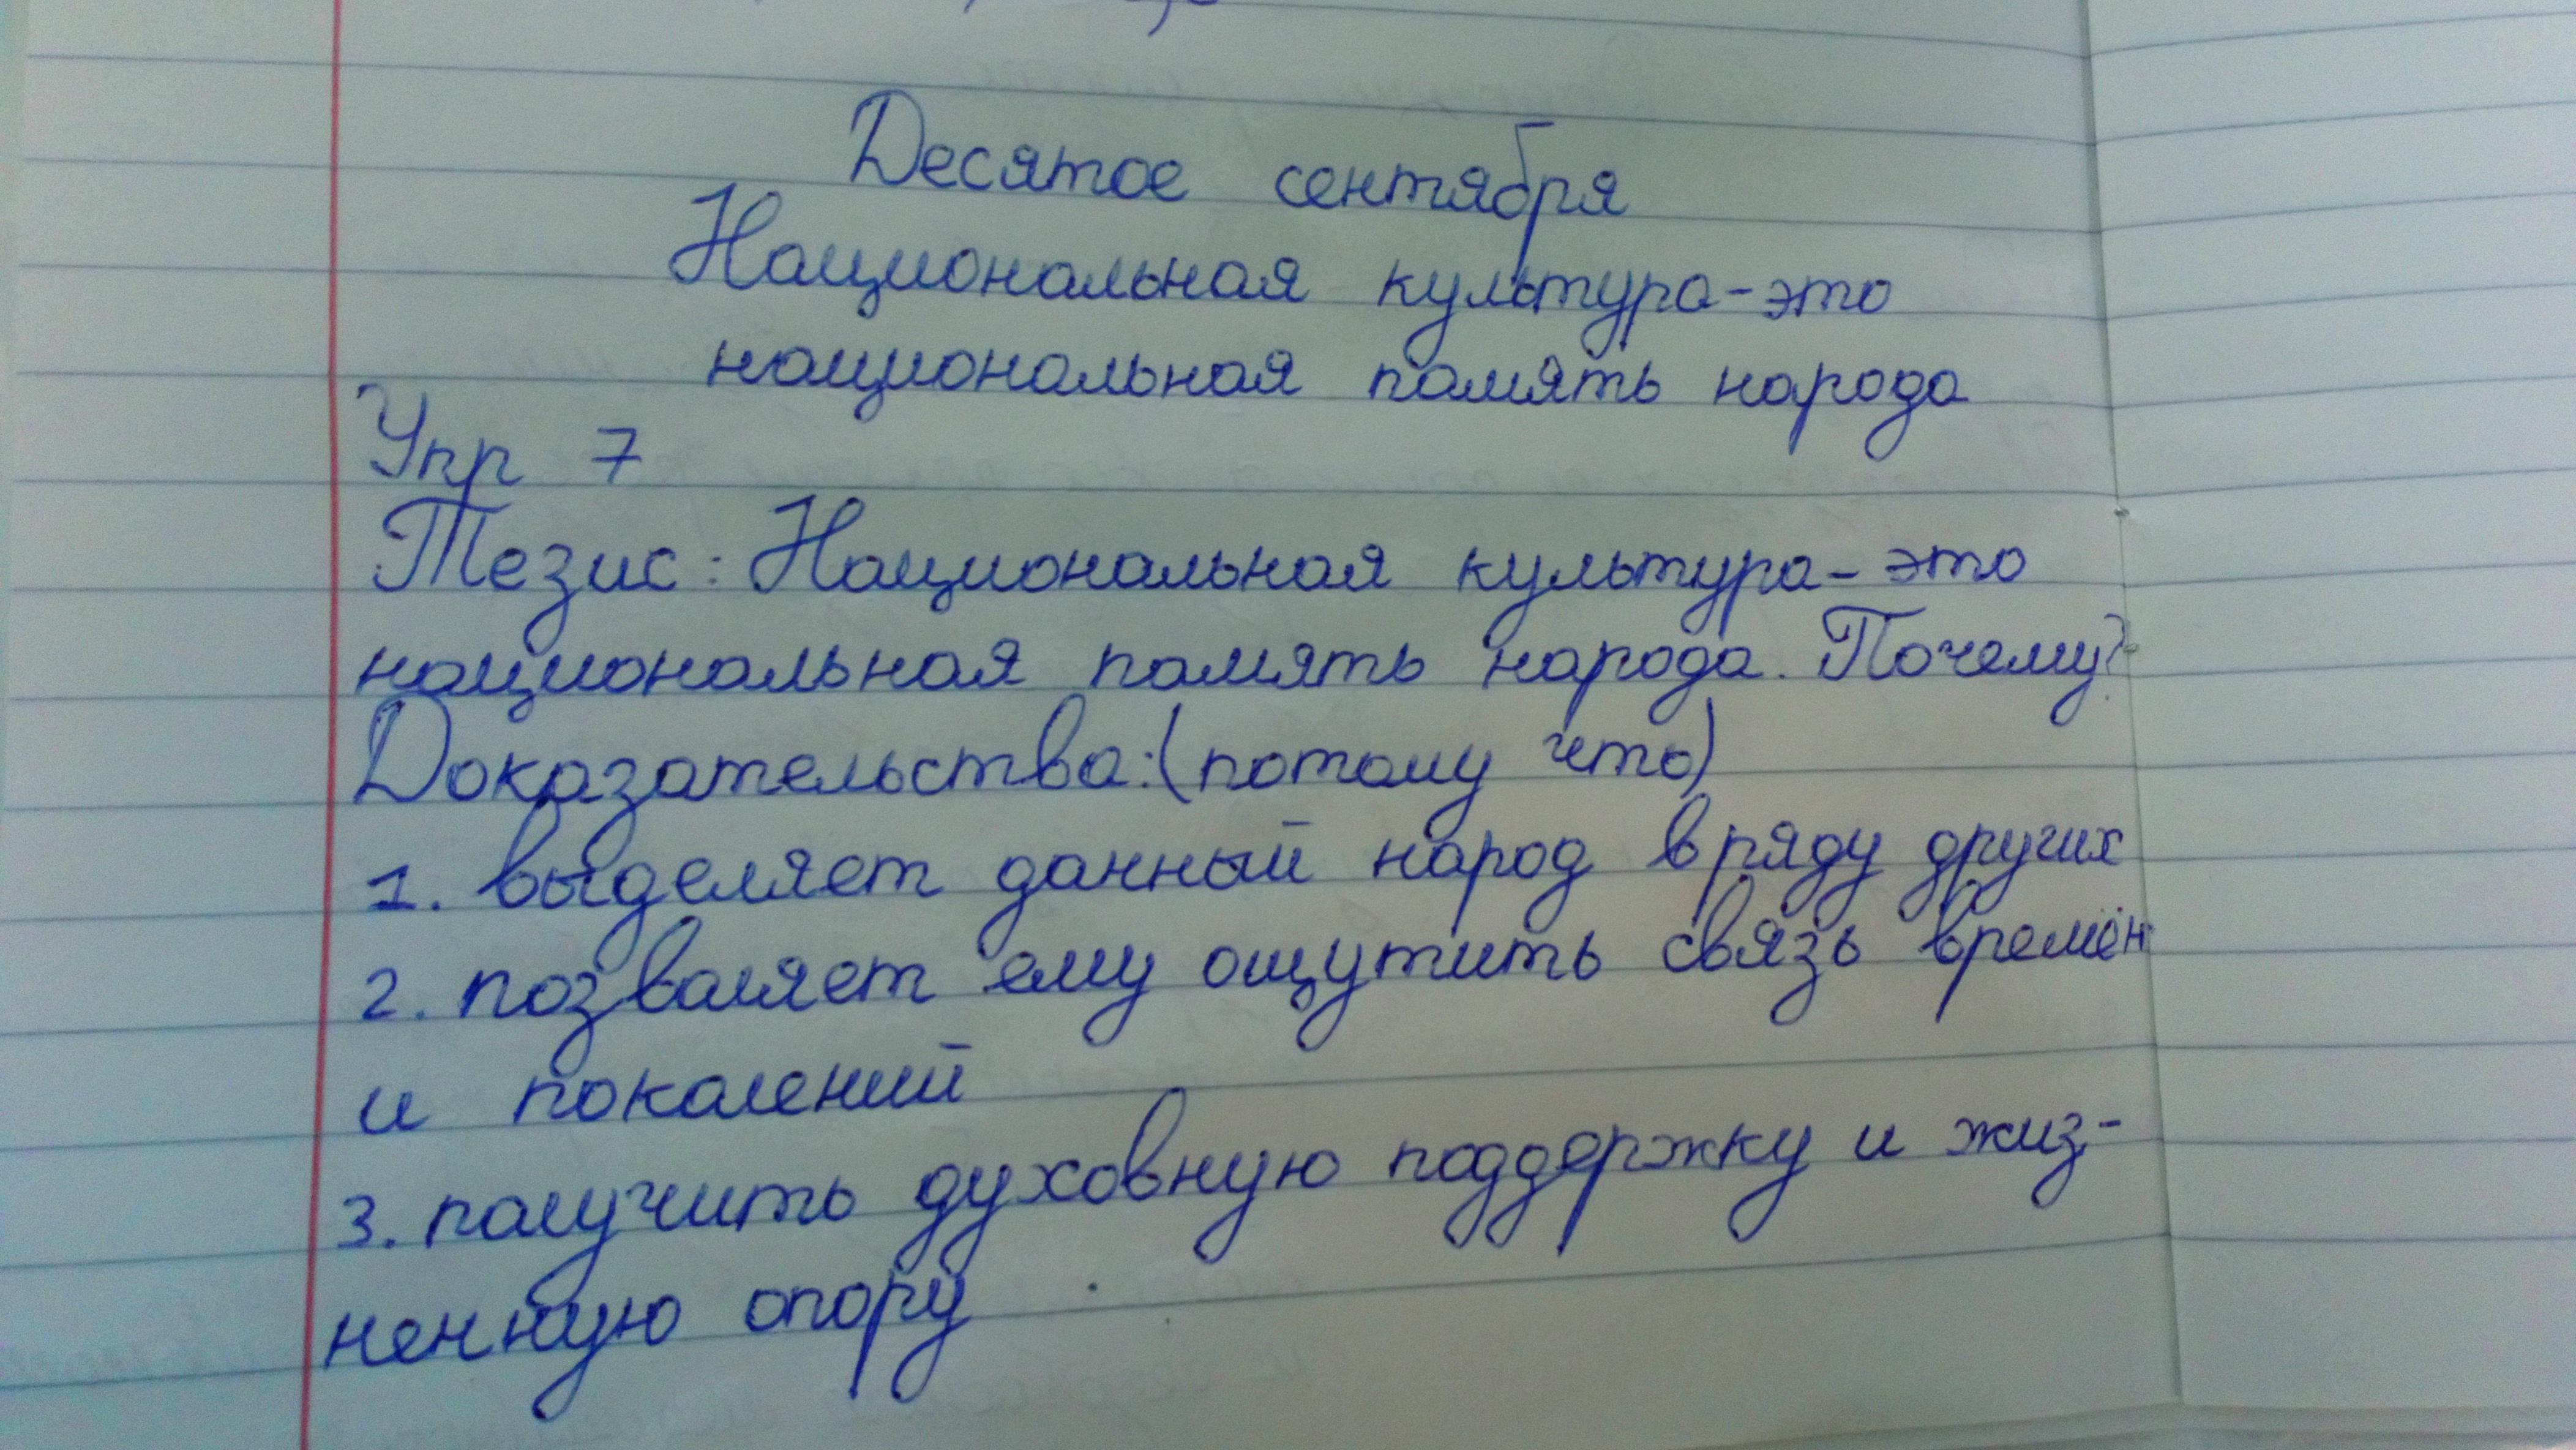 Десятое сентября
Национальная культура-это
национальная память народа
Упр 7
Тезис: Национальная культура-это
национальная память народа. Почему?
Доказательства:(потому что)
1. выделяет данный народ в ряду других
2. позволяет ему ощутить связь времён
и поколений
3. получить духовную поддержку и жиз-
ненную опору